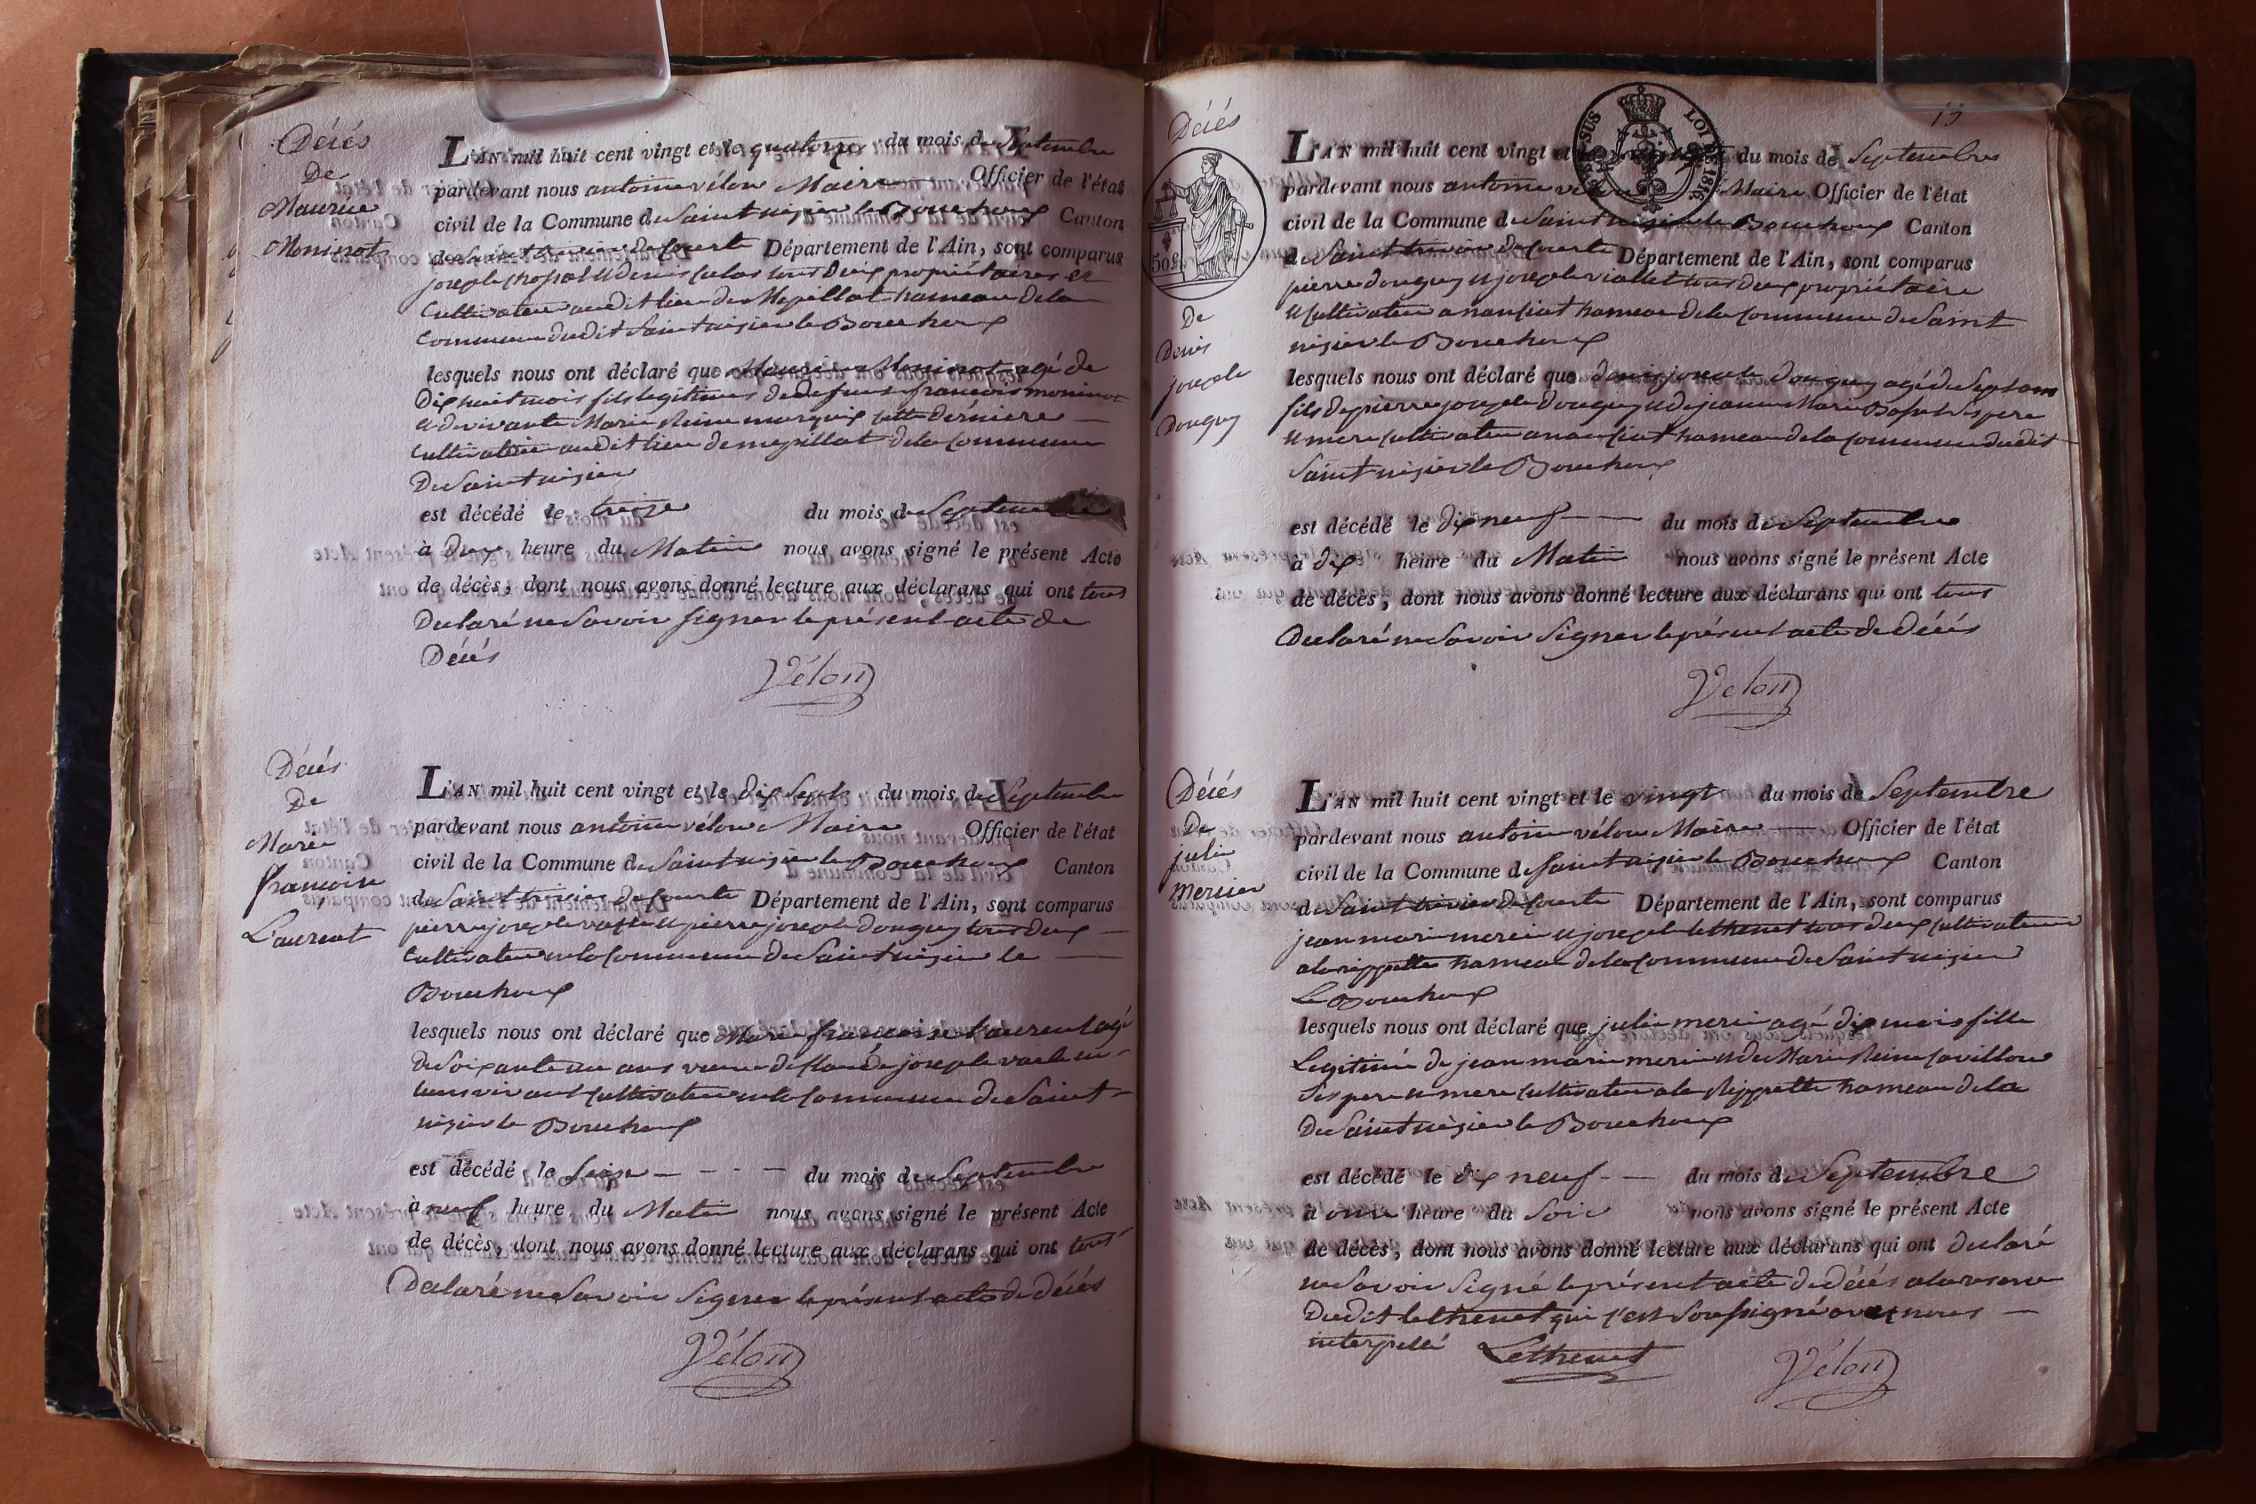 Décés
De
Maurice
Moninot
L'AN mil huit cent vingt et le quatorze du mois de Septembre
pardevant nous antoine vélon Maire Officier de l'état
civil de la Commune de Saint nizier le Bouchoux Canton
de Saint trivier de Courte Département de l'Ain, sont comparus
joseph et denis tous deux propriétaires et
Cultivateur audit lieu de Mepillat hameau de la
Commune dudit Saint nizier le Bouchoux
lesquels nous ont déclaré que Maurice Moninot agé de
Dix huit mois fils légitime de defunt francois moninot
et de vivante Marie Reine cette dérniere
Cultivatrice audit lieu de mepillat de la Commune
De Saint nizier
est décédé le treize du mois de Septembre
à heure du Matin nous avons signé le présent Acte
de décès, dont nous avons donné lecture aux déclarans qui ont tous
Declaré ne Savoir signer le présent acte de
Décés
Vélon
Décés
De
Marie
francoise
Laurent
L'AN mil huit cent vingt et le dix Sept du mois de Septembre
pardevant nous antoine vélon Maire Officier de l'état
civil de la Commune de Saint nizier le Bouchoux Canton
de Saint trivier de Courte Département de l'Ain, sont comparus
pierre joseph et pierre joseph Douguy tous deux
Cultivateur en la Commune de Saint nizier le
Bouchoux
lesquels nous ont déclaré que Marie francoise Laurent agé
De Soixante ans veuve de joseph
vivant Cultivateur en la Commune de Saint
nizier le Bouchoux
est décédé le Seize du mois de Septembre
à neuf heure du Matin nous avons signé le présent Acte
de décès, dont nous avons donné lecture aux déclarans qui ont tous
Declaré ne Savoir Signer le présent acte de décés
Vélon
13
SUS LOI 1816
50 c.
Décés
De
Denis
joseph
Douguy
L'AN mil huit cent vingt et le du mois de Septembre
pardevant nous antoine vélon Maire Officier de l'état
civil de la Commune de Saint nizier le Bouchoux Canton
de Saint trivier de Courte Département de l'Ain, sont comparus
pierre douguy et joseph viallet tous deux propriétaire
et Cultivateur a nanciat hameau de la Commune de Saint
nizier le Bouchoux
lesquels nous ont déclaré que denis joseph Douguy agé de Sept ans
fils de pierre joseph douguy et de jeanne Marie Ses pere
et mere Cultivateur a nanciat hameau de la Commune dudit
Saint nizier le Bouchoux
est décédé le dix neuf du mois de Septembre
à dix heure du Matin nous avons signé le présent Acte
de décès, dont nous avons donné lecture aux déclarans qui ont tous
Declaré ne Savoir Signer le présent acte de décés
Vélon
Décés
De
julie
Mercier
L'AN mil huit cent vingt et le vingt du mois de Septembre
pardevant nous antoine vélon Maire Officier de l'état
civil de la Commune de Saint nizier le Bouchoux Canton
de Saint trivier de Courte Département de l'Ain, sont comparus
jean marie mercier et joseph Lethenet tous deux Cultivateur
a la rippette hameau de la Commune de Saint nizier
Le Bouchoux
lesquels nous ont déclaré que julie mercier agé dix mois fille
Legitime de jean marie mercier et de Marie Reine
Ses pere et mere Cultivateur a la Rippette hameau de la
De Saint nizier le Bouchoux
est décédé le dix neuf du mois de Septembre
à onze heure du Soir nous avons signé le présent Acte
de décès, dont nous avons donné lecture aux déclarans qui ont declaré
ne Savoir Signé le présent acte de décés a la reserve
Dudit Lethenet qui s'est Soussigné avec nous
interpellé Lethenet Vélon